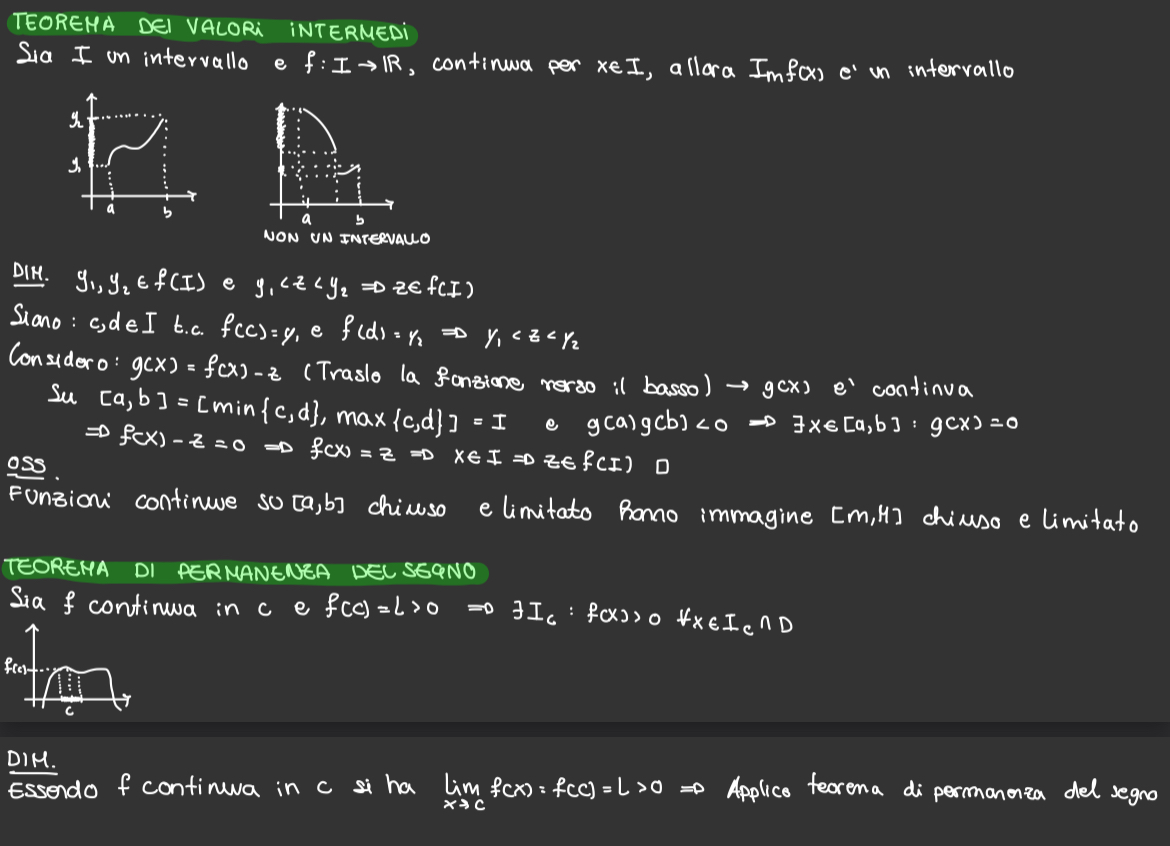 TEOREMA DEI VALORI INTERMEDI
Sia I un intervallo e f: I → ℝ, continua per x∈I, allora Im f(x) e' un intervallo
y₂
y₁
a
b
a
b
NON UN INTERVALLO
DIM. y₁, y₂ ∈ f(I) e y₁ < z < y₂ ⇒ z∈ f(I)
Siano : c,d∈I t.c. f(c)=y₁ e f(d)=y₂ ⇒ y₁ < z < y₂
Considero: g(x) = f(x)-z (Traslo la funzione verso il basso) → g(x) e' continua
Su [a,b] = [min{c,d}, max{c,d}] = I e g(a)g(b)<0 ⇒ ∃x∈[a,b] : g(x)=0
⇒ f(x)-z=0 ⇒ f(x)=z ⇒ x∈I ⇒ z∈f(I) □
OSS.
Funzioni continue su [a,b] chiuso e limitato hanno immagine [m,M] chiuso e limitato
TEOREMA DI PERMANENZA DEL SEGNO
Sia f continua in c e f(c)=L>0 ⇒ ∃I_c : f(x)>0 ∀x∈I_c∩D
f(c)
c
DIM.
Essendo f continua in c si ha lim x→c f(x) = f(c) = L >0 ⇒ Applico teorema di permanenza del segno